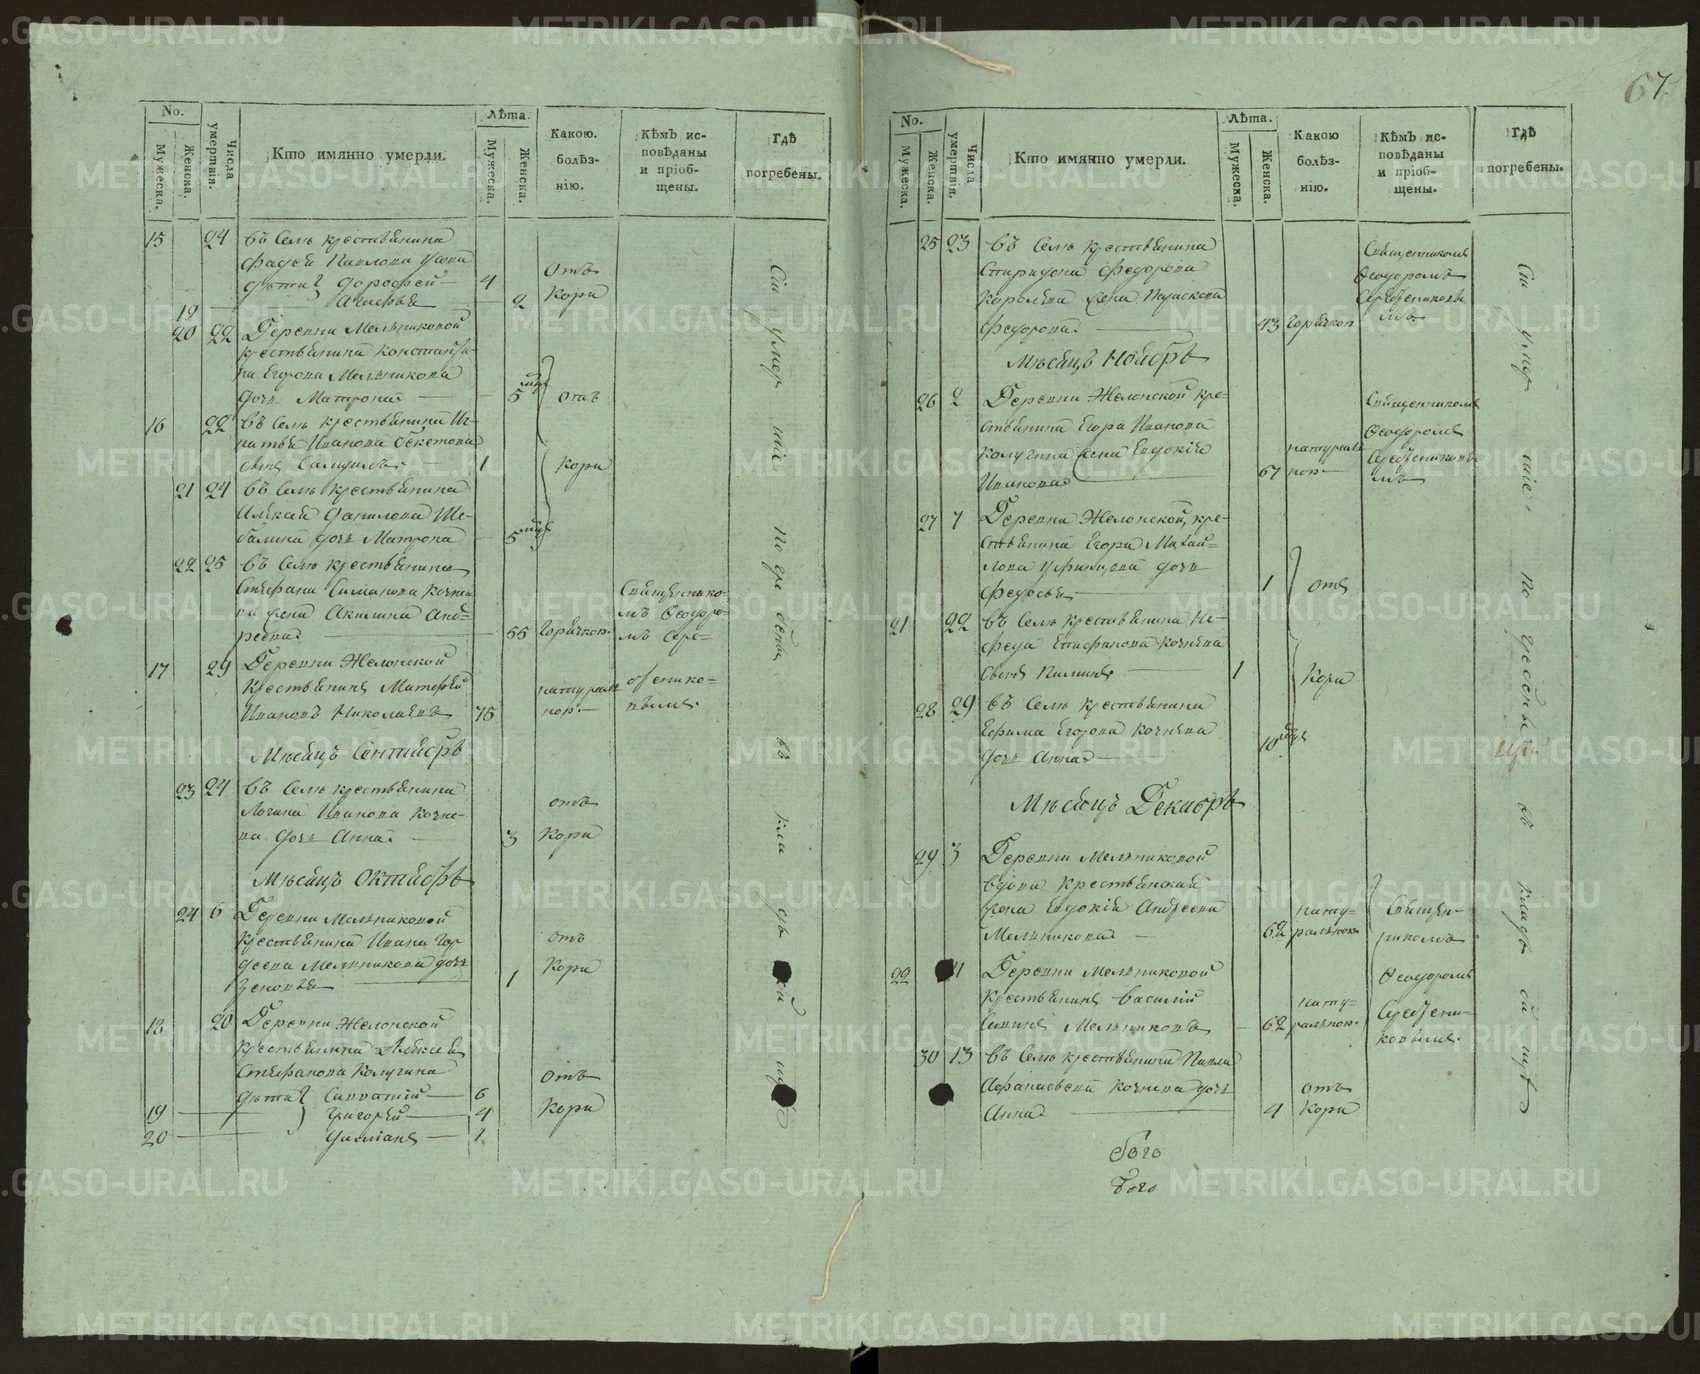 67.
No.
Мужеска.
Женска.
Числа умертвія.
Кто имянно умерли.
Лѣта.
Мужеска.
Женска.
Какою. болѣз- нію.
Кѣмъ ис- повѣданы и пріоб- щены.
Гдѣ погребены.
15 24 Въ Селѣ крестьянина
дѣти Дорофей 4 Отъ
19 Агафья 2 Кори
20 22 Деревни Мельниковой
крестьянина Константи-
на Егорова Мельникова
дочь Матрона 5 мцъ Отъ
16 22 Въ Селѣ крестьянина Иг-
натья Иванова Бекетова
сынъ Самуилъ 1 Кори
21 24 Въ Селѣ крестьянина
дочь Матрона 5 мцъ
22 25 Въ Селѣ крестьянина
Стефана Симанова Кочне-
ва жена Акилина Анд-
реева 55 Горячкою
Священнико-
мъ Ѳеодоро-
мъ Сере-
бренико-
вымъ
17 29 Деревни Жемонской
крестьянинъ Матѳей
Ивановъ Николаевъ 75 натураль-
ною
Мѣсяцъ Сентябрь
23 24 Въ Селѣ крестьянина
Логина Иванова Кочне- отъ
ва дочь Анна 3 Кори
Мѣсяцъ Октябрь
24 6 Деревни Мельниковой
крестьянина Ивана Гор- отъ
деева Мельникова дочь Кори
Зеновья 1
18 20 Деревни Жемонской
крестьянина Алексѣя
Стефанова Калугина отъ
дѣти Савватій 6
19 Григорей 4 Кори
20 1
Сіи умершіе погребены въ кладбищѣ
No.
Мужеска.
Женска.
Числа умертвія.
Кто имянно умерли.
Лѣта.
Мужеска.
Женска.
Какою болѣз- нію.
Кѣмъ ис- повѣданы и пріоб- щены.
Гдѣ погребены.
25 23 Въ Селѣ крестьянина
Спиридона Федорова
жена Параскева
Федорова 43 Горячкою
Священникомъ
Ѳеодоромъ
Серебрениковы
мъ
Мѣсяцъ Ноябрь
26 2 Деревни Жемонской кре-
стьянина Егора Иванова
Калугина жена Евдокія
Иванова 67 натураль
ною
Священникомъ
Ѳеодоромъ
Серебрениковы
мъ
27 7 Деревни Жемонской кре-
стьянина Егора Михай-
лова дочь
Федосья 1 Отъ
21 22 Въ Селѣ крестьянина Не-
феда Епифанова Кочнева
сынъ 1 Кори
28 29 Въ Селѣ крестьянина
Ефима Егорова Кочнева
дочь Анна 10 мцъ
Мѣсяцъ Декабрь
29 3 Деревни Мельниковой
вдова крестьянская
жена Евдокія Андреева
Мельникова 62 нату-
ральною
Священ-
никомъ
Ѳеодоромъ
Серебрени-
ковымъ
22 Деревни Мельниковой
крестьянинъ Василій
Мельниковъ 62 нату-
ральною
30 13 Въ Селѣ крестьянина Павла
Афанасьева Кочнева дочь отъ
Анна 4 Кори
Сіи умершіе погребены въ кладбищѣ